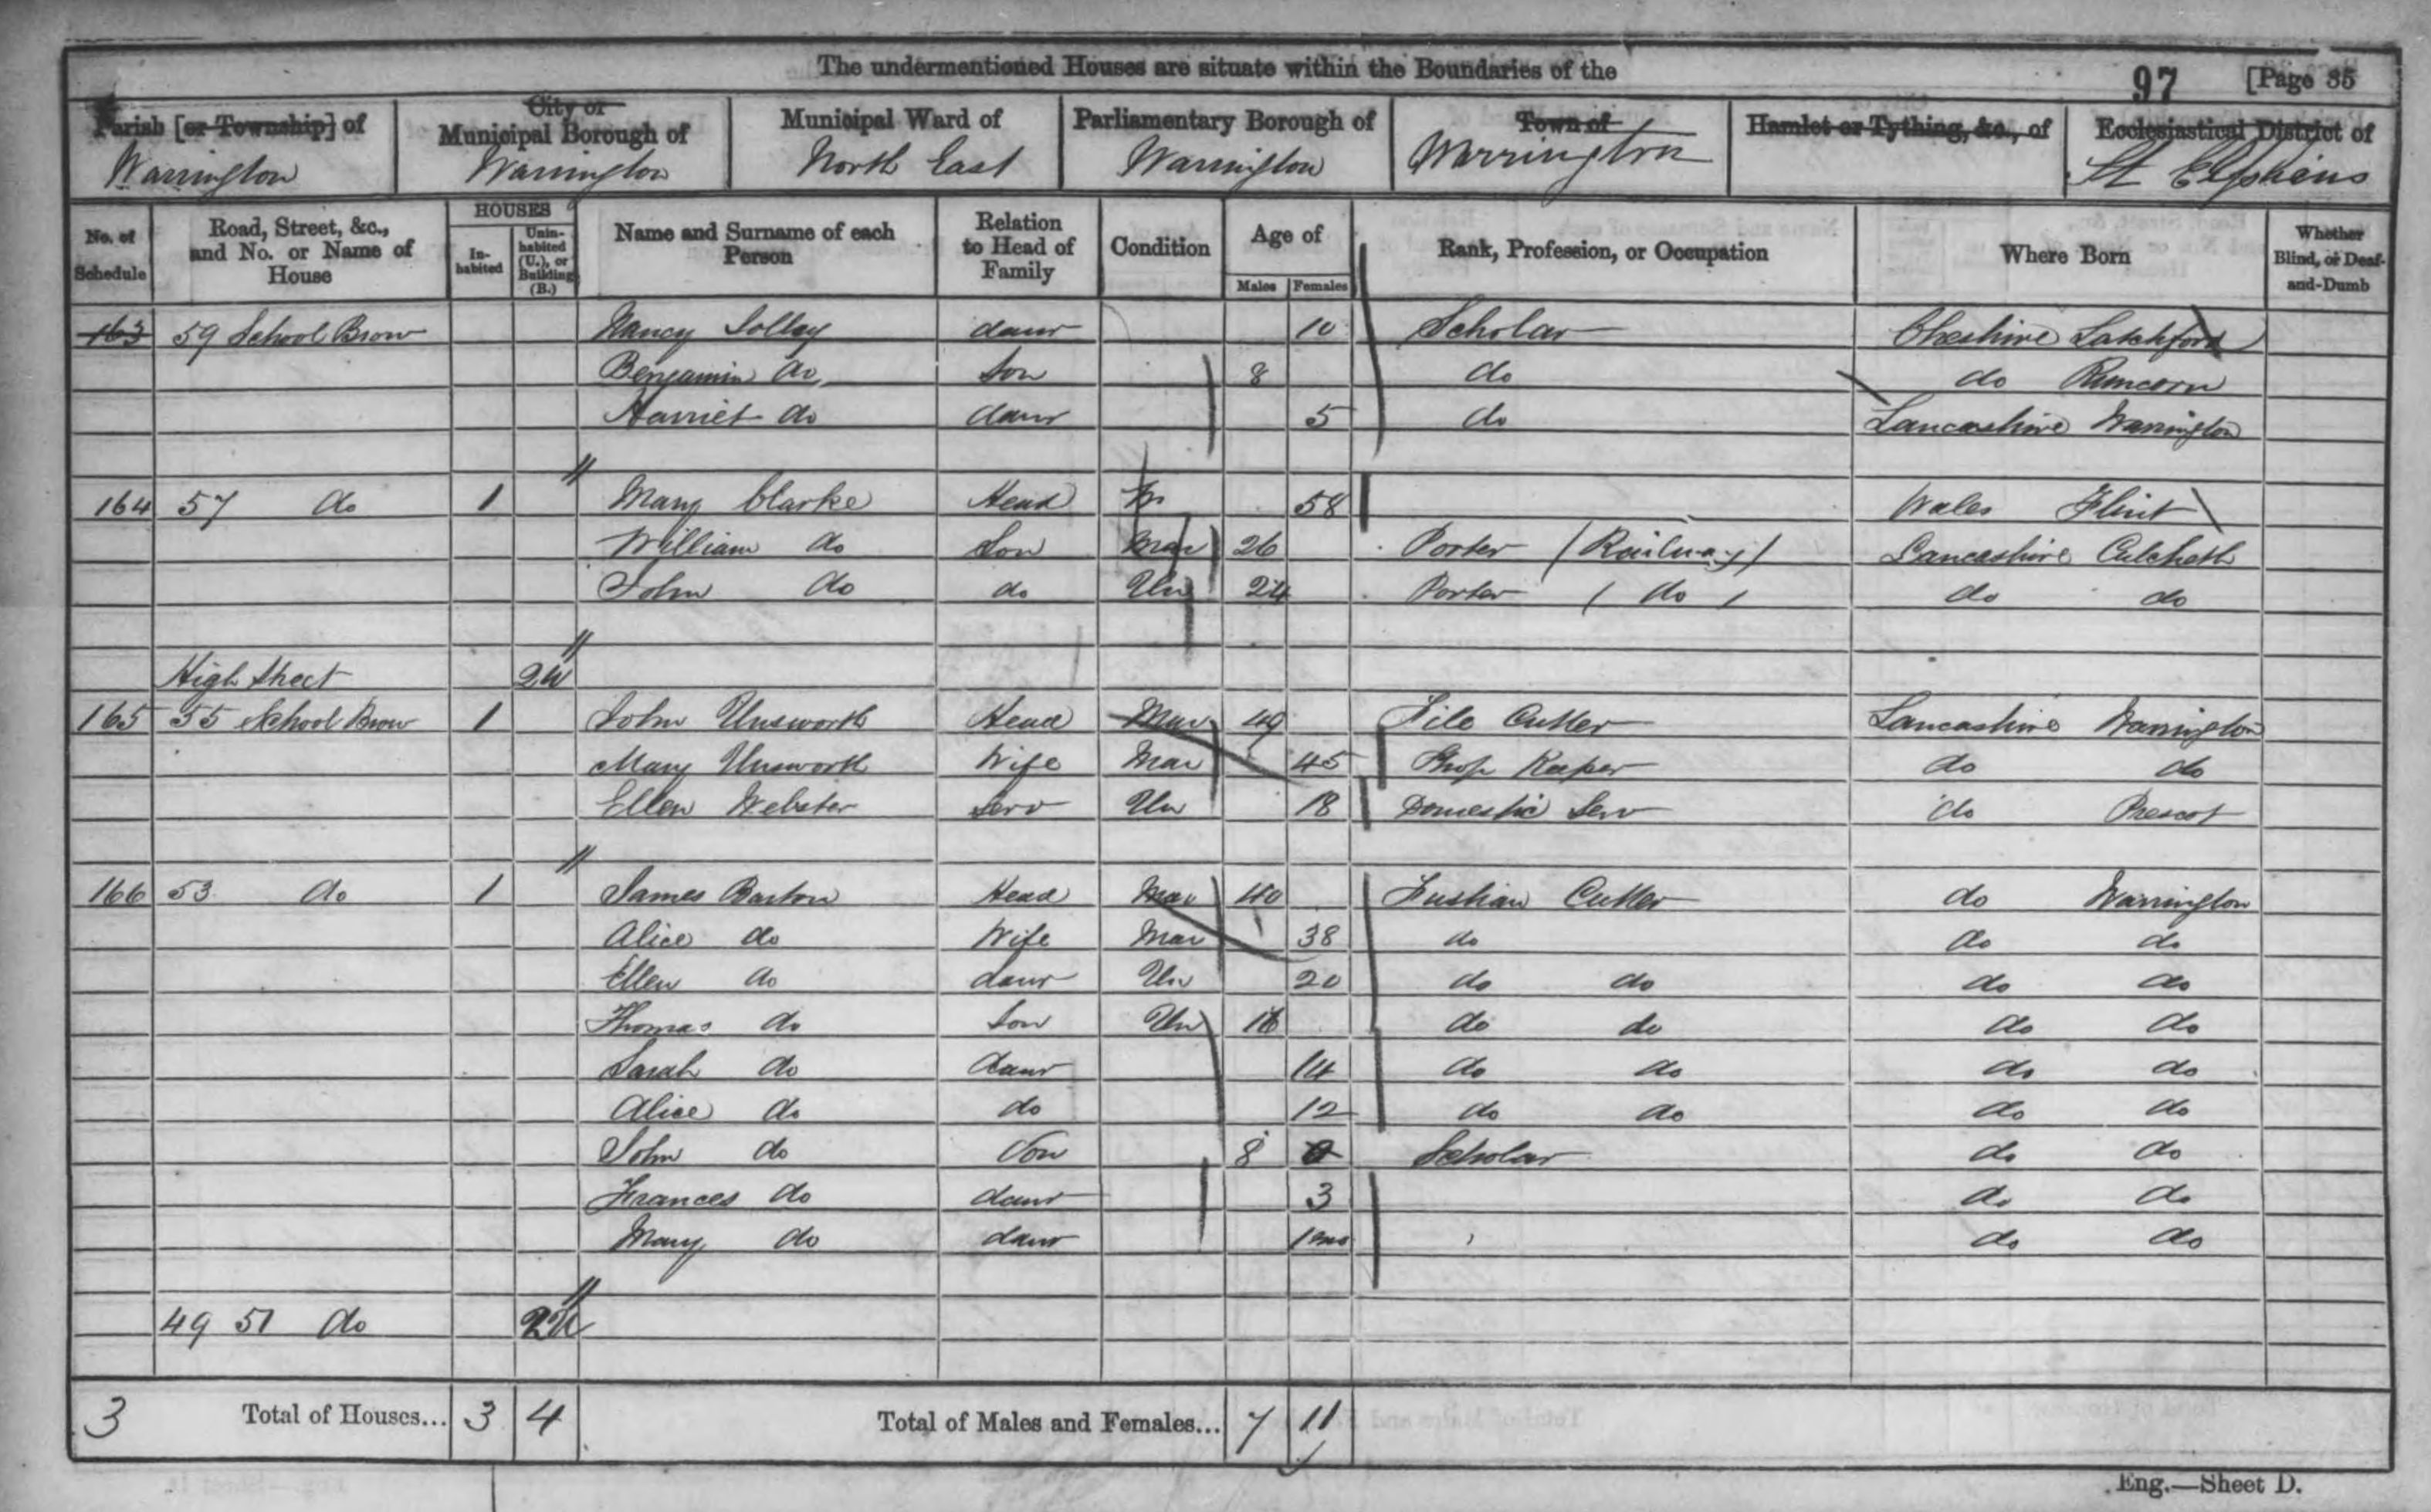 The undermentioned Houses are situate within the Boundaries of the 97 [Page 35
Parish [or Township] of City or Municipal Borough of Municipal Ward of Parliamentary Borough of Town of Hamlet or Tything, &c., of Ecclesiastical District of
Warrington Warrington North East Warrington Warrington St Elphins
No. of Schedule Road, Street, &c., and No. or Name of House HOUSES Inhabited Uninhabited (U.), or Building (B.) Name and Surname of each Person Relation to Head of Family Condition Age of Males Females Rank, Profession, or Occupation Where Born Whether Blind, or Deaf-and-Dumb
163 59 School Brow Nancy Solley daur 10 Scholar Cheshire Latchford
Benjamin do Son 8 do do Runcorn
Harriet do daur 5 do Lancashire Warrington
164 57 do 1 Mary Clarke Head W 58 Wales Flint
William do Son Mar 26 Porter (Railway) Lancashire Culcheth
John do do Un 24 Porter ( do ) do do
High Street 2U
165 55 School Brow 1 John Unsworth Head Mar 49 File Cutter Lancashire Warrington
Mary Unsworth Wife Mar 45 Shop Keeper do do
Ellen Webster Serv Un 18 Domestic Serv do Prescot
166 53 do 1 James Barton Head Mar 40 Fustian Cutter do Warrington
Alice do Wife Mar 38 do do do
Ellen do daur Un 20 do do do do
Thomas do Son Un 16 do do do do
Sarah do daur 14 do do do do
Alice do do 12 do do do do
John do Son 8 Scholar do do
Frances do daur 3 do do
Mary do daur 1mo do do
49 51 do 2U
3 Total of Houses... 3 4 Total of Males and Females... 7 11
Eng.—Sheet D.